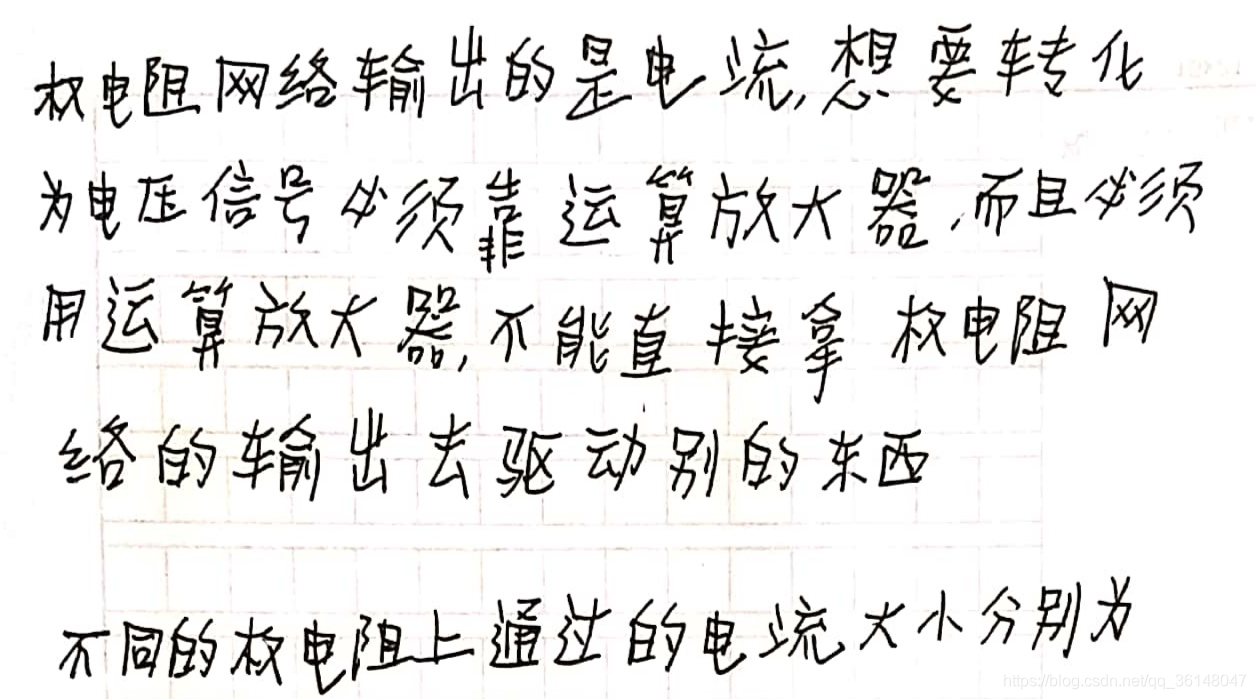 权电阻网络输出的是电流,想要转化
为电压信号必须靠运算放大器,而且必须
用运算放大器,不能直接拿权电阻网
络的输出去驱动别的东西
不同的权电阻上通过的电流大小分别为
https://blog.csdn.net/qq_36148047